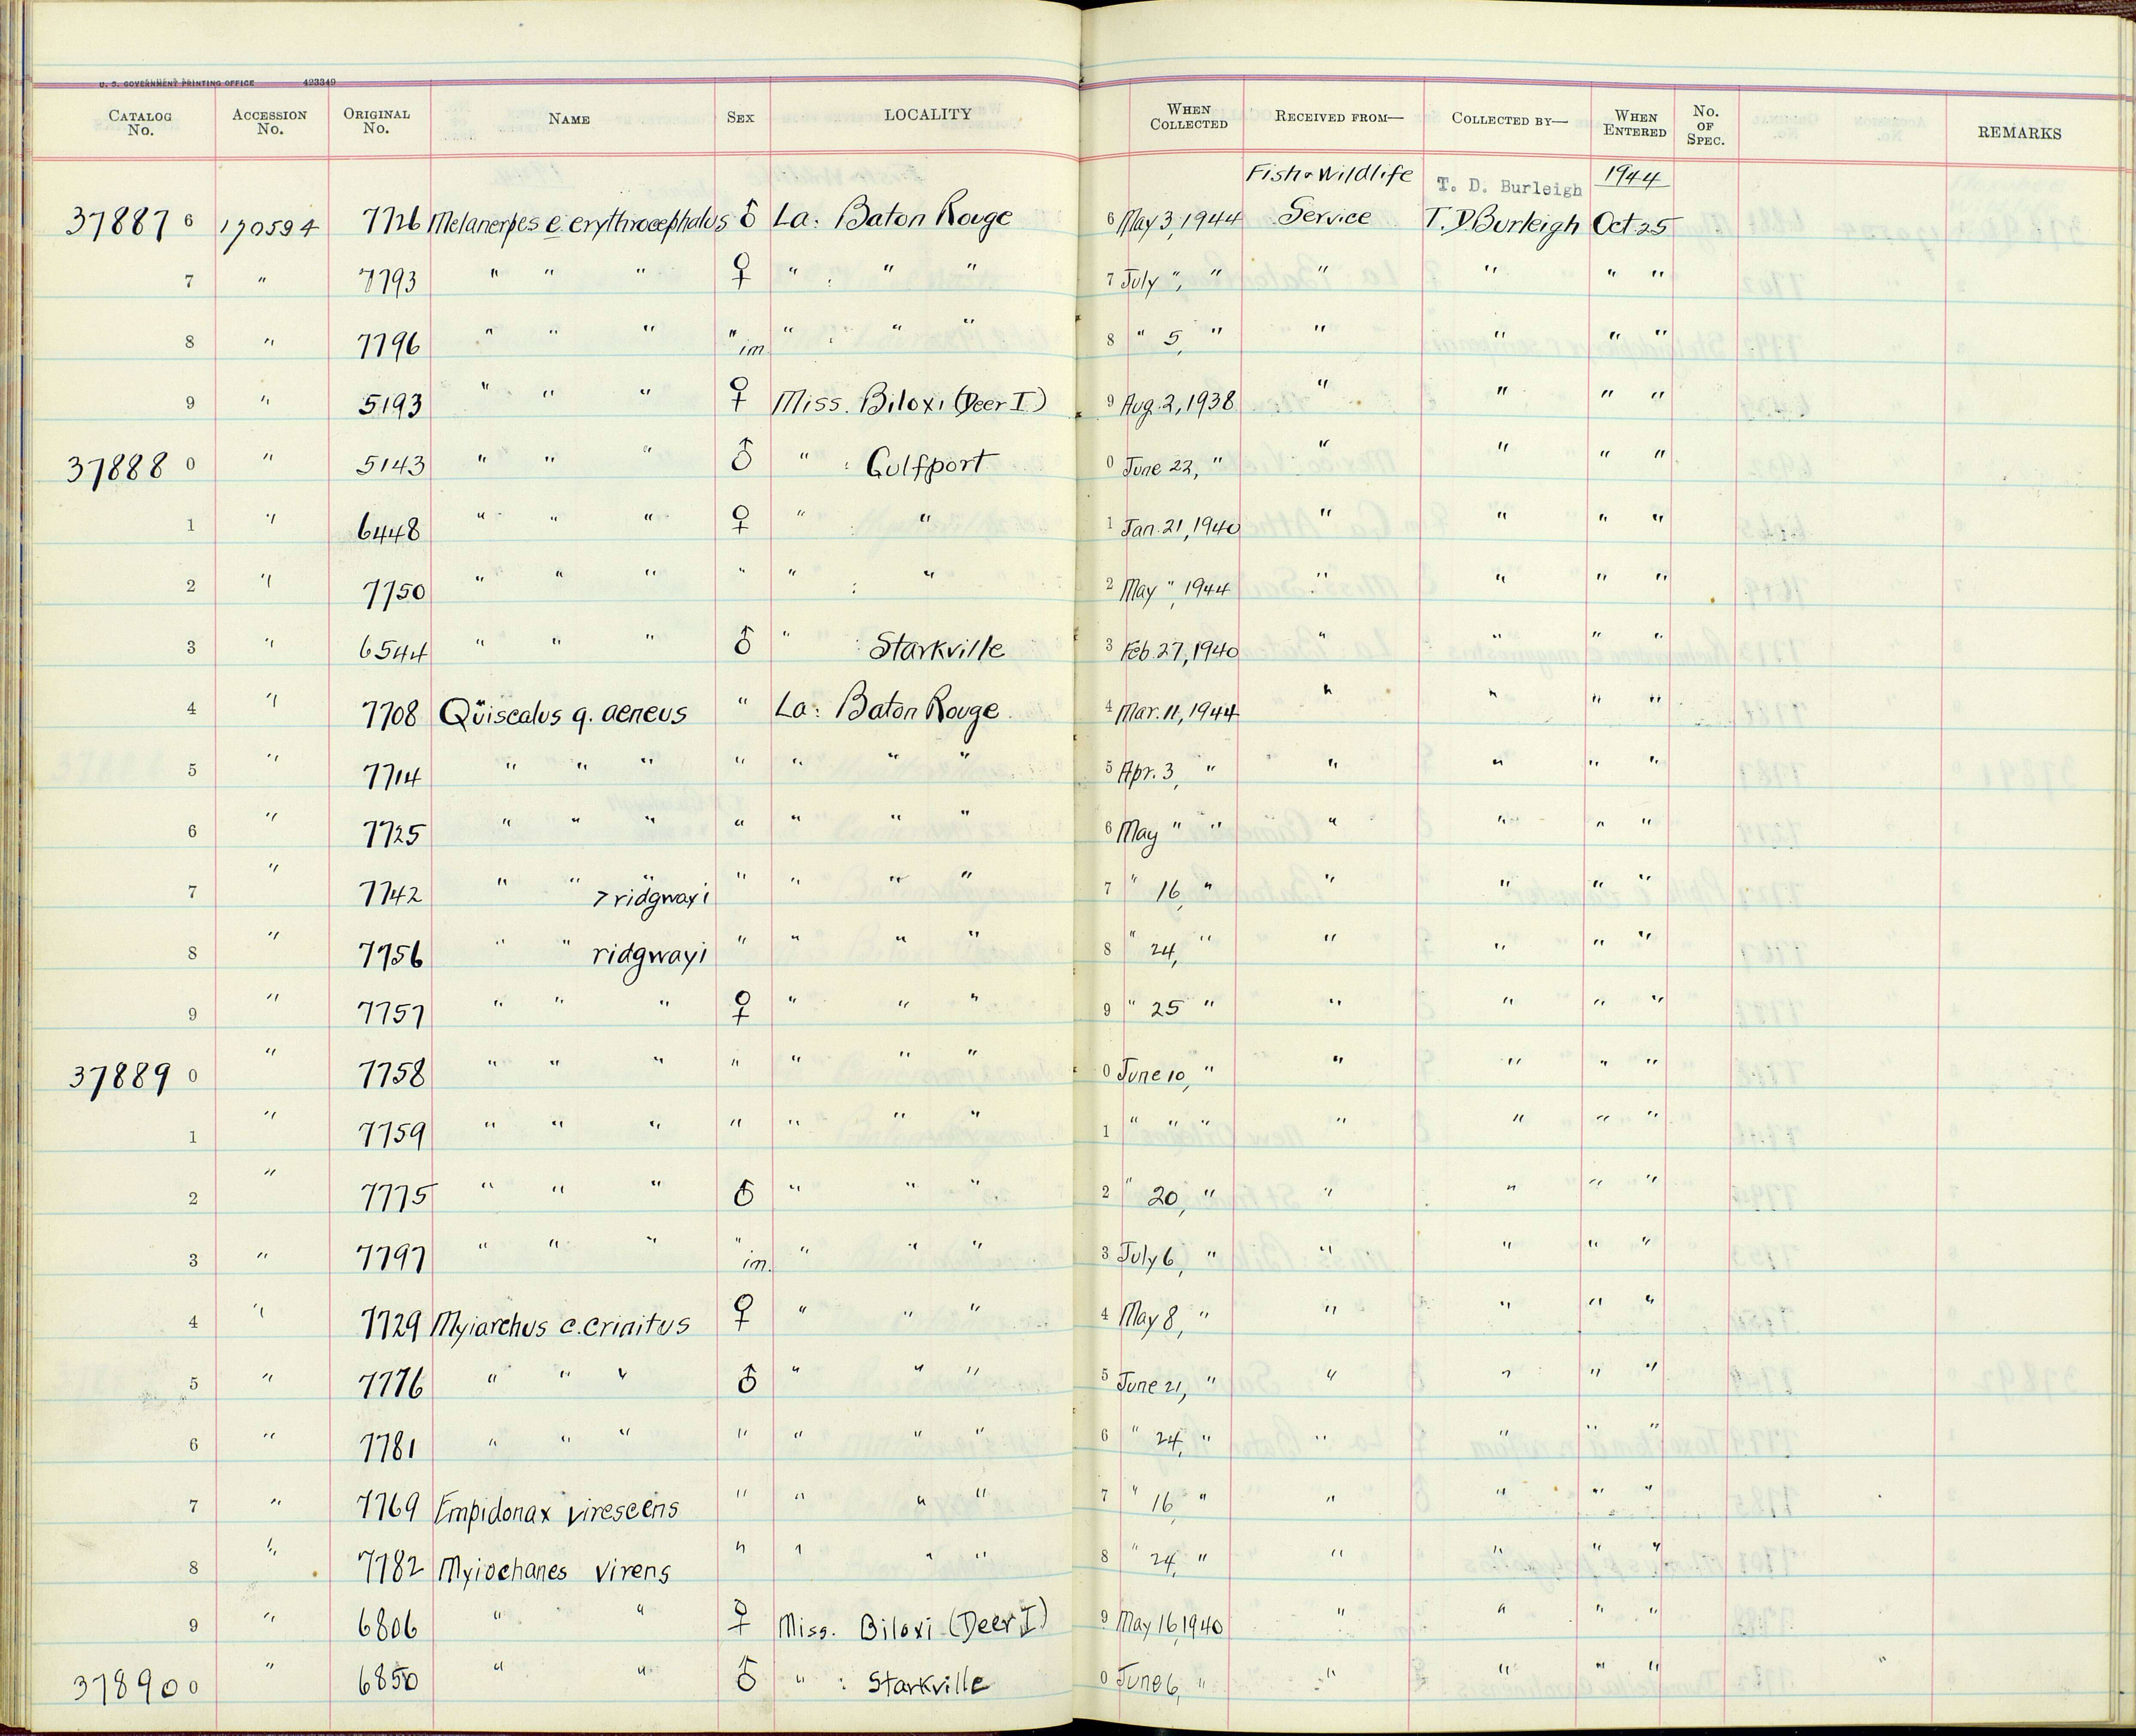 U. S. GOVERNMENT PRINTING OFFICE 423349
CATALOG No. ACCESSION No. ORIGINAL No. NAME SEX LOCALITY WHEN COLLECTED RECEIVED FROM— COLLECTED BY— WHEN ENTERED No. OF SPEC. REMARKS
Fish & Wildlife T. D. Burleigh 1944
37887 6 170594 7726 Melanerpes e. erythrocephalus ♂ La: Baton Rouge 6 May 3, 1944 Service T. D. Burleigh Oct 25
7 " 7793 " " " ♀ " : " " 7 July ", " " " " "
8 " 7796 " " " " im. " : " " 8 " 5, " " " " "
9 " 5193 " " " ♀ Miss. Biloxi (Deer I) 9 Aug. 2, 1938 " " " "
37888 0 " 5143 " " " ♂ " : Gulfport 0 June 22, " " " " "
1 " 6448 " " " ♀ " : " 1 Jan. 21, 1940 " " " "
2 " 7750 " " " " " : " 2 May ", 1944 " " " "
3 " 6544 " " " ♂ " : Starkville 3 Feb. 27, 1940 " " " "
4 " 7708 Quiscalus q. aeneus " La: Baton Rouge 4 Mar. 11, 1944 " " " "
5 " 7714 " " " " " " " 5 Apr. 3, " " " " "
6 " 7725 " " " " " " " 6 May " " " " " "
7 " 7742 " " " > ridgwayi " " " " 7 " 16, " " " " "
8 " 7756 " " ridgwayi " " " " 8 " 24, " " " " "
9 " 7757 " " " ♀ " " " 9 " 25 " " " " "
37889 0 " 7758 " " " " " " " 0 June 10, " " " " "
1 " 7759 " " " " " " " 1 " " " " " " "
2 " 7775 " " " ♂ " " " 2 " 20, " " " " "
3 " 7797 " " " " im. " " " 3 July 6, " " " " "
4 " 7729 Myiarchus c. crinitus ♀ " " " 4 May 8, " " " " "
5 " 7776 " " " ♂ " " " 5 June 21, " " " " "
6 " 7781 " " " " " " " 6 " 24, " " " " "
7 " 7769 Empidonax virescens " " " " 7 " 16, " " " " "
8 " 7782 Myiochanes virens " " " " 8 " 24, " " " " "
9 " 6806 " " ♀ Miss. Biloxi (Deer I) 9 May 16, 1940 " " " "
37890 0 " 6850 " " ♂ " : Starkville 0 June 6, " " " " "